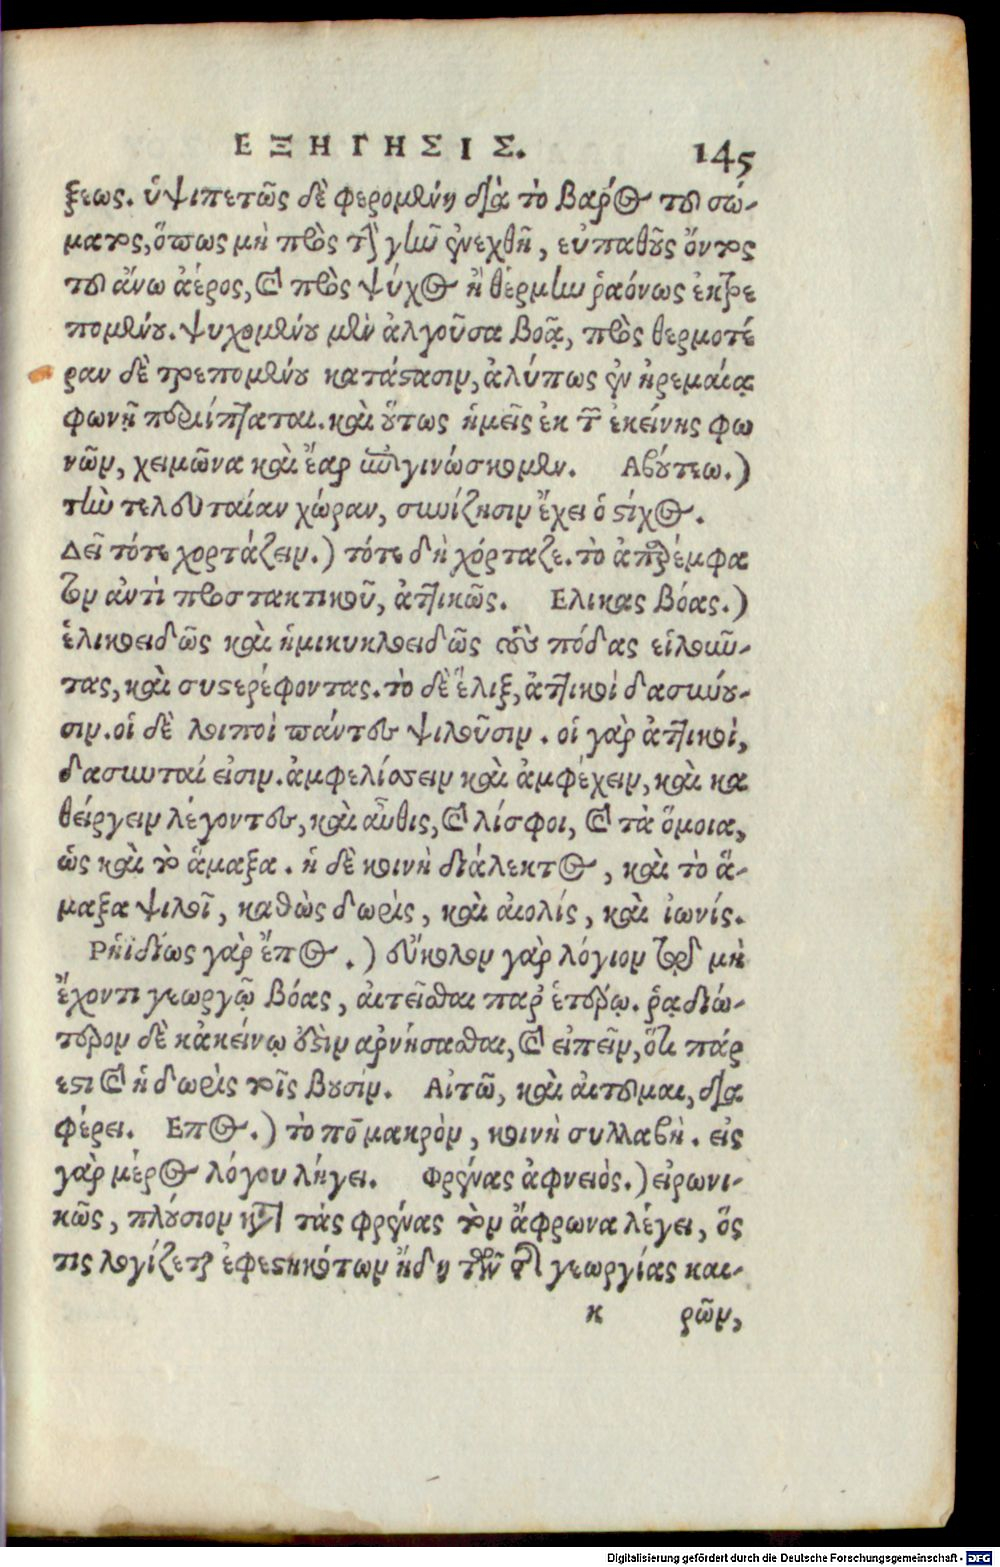 ΕΞΗΓΗΣΙΣ. 145
ξεως. ὑψιπετῶς δὲ φερομένη διὰ τὸ βάρος τοῦ σώ-
ματος, ὅπως μὴ πρὸς τὴν γῆν ἐνεχθῇ, εὐπαθοῦς ὄντος
τοῦ ἄνω ἀέρος, καὶ πρὸς ψύχος ἢ θέρμην ῥαόνως ἐκτρε
πομένου. ψυχομένου μὲν ἀλγοῦσα βοᾷ, πρὸς θερμοτέ
ραν δὲ τρεπομένου κατάστασιν, ἀλύπως ἐν ἠρεμαίᾳ
φωνῇ περιίπταται. καὶ οὕτως ἡμεῖς ἐκ τῶν ἐκείνης φω
νῶν, χειμῶνα καὶ ἔαρ ἐπιγινώσκομεν. Αβούτεω.)
τὴν τελευταίαν χώραν, συνίζησιν ἔχει ὁ στίχος.
Δεῖ τότε χορτάζειν.) τότε δὴ χόρταζε. τὸ ἀπαρέμφα
τον ἀντὶ προστακτικοῦ, ἀττικῶς. Ελικας βόας.)
ἑλικοειδῶς καὶ ἡμικυκλοειδῶς τοὺς πόδας εἱλοῦν-
τας, καὶ συστρέφοντας. τὸ δὲ ἕλιξ, ἀττικοὶ δασύνου-
σιν. οἱ δὲ λοιποὶ πάντες ψιλοῦσιν. οἱ γὰρ ἀττικοὶ,
δασυνταί εἰσιν. ἀμφελίσσειν καὶ ἀμφέχειν, καὶ κα
θείργειν λέγοντες, καὶ αὖθις, καὶ λίσφοι, καὶ τὰ ὅμοια,
ὡς καὶ τὸ ἅμαξα. ἡ δὲ κοινὴ διάλεκτος, καὶ τὸ ἅ-
μαξα ψιλοῖ, καθὼς δωρὶς, καὶ αἰολίς, καὶ ἰωνίς.
Ρηϊδίως γὰρ ἔπος.) εὔκολον γὰρ λόγιον τῷ μὴ
ἔχοντι γεωργῷ βόας, αἰτεῖσθαι παρ' ἑτέρῳ. ῥᾳδιώ-
τερον δὲ κἀκείνῳ οὖσιν ἀρνήσασθαι, καὶ εἰπεῖν, ὅτι πάρ
εστι καὶ ἡ δωρὶς τοῖς βουσίν. Αἰτῶ, καὶ αἰτοῦμαι, δια
φέρει. Επος.) τὸ πο μακρὸν, κοινὴ συλλαβὴ. εἰς
γὰρ μέρος λόγου λήγει. Φρένας ἀφνειὸς.) εἰρωνι-
κῶς, πλούσιον κατὰ τὰς φρένας τὸν ἄφρωνα λέγει, ὅς
τις λογίζεται ἐφεστηκότων ἤδη τῶν τῆς γεωργίας και-
κ ρῶν,
Digitalisierung gefördert durch die Deutsche Forschungsgemeinschaft - DFG